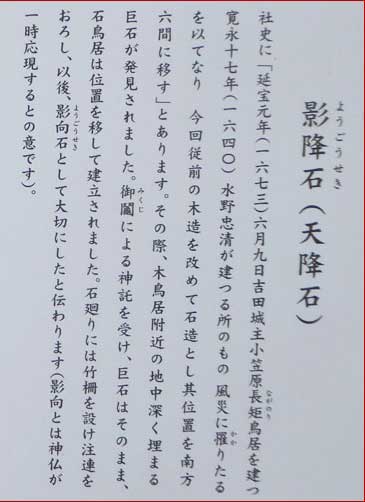 影降石（天降石）
ようごうせき
社史に「延宝元年（一六七三）六月九日吉田城主小笠原長矩鳥居を建つ
ながのり
寛永十七年（一六四〇）水野忠清が建つる所のもの 風災に罹りたる
かか
を以てなり 今回従前の木造を改めて石造とし其位置を南方
六間に移す」とあります。その際、木鳥居附近の地中深く埋まる
巨石が発見されました。御鬮による神託を受け、巨石はそのまま、
みくじ
石鳥居は位置を移して建立されました。石廻りには竹柵を設け注連を
おろし、以後、影向石として大切にしたと伝わります（影向とは神仏が
ようごうせき
一時応現するとの意です）。